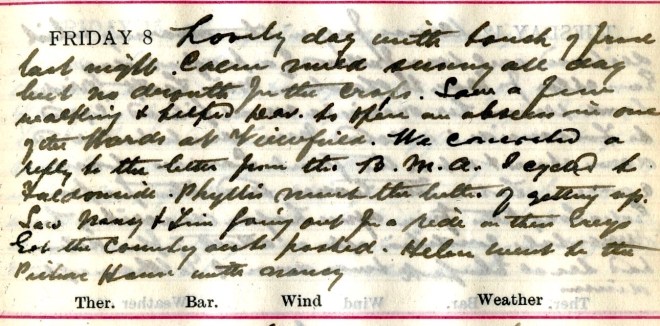 FRIDAY 8 Lovely day with touch of frost
last night. Calm mild sunny all day
but no drouth for the crops. Saw a few
walking & helped Dav. to open an abscess in one
of the Wards at Viewfield. We concocted a
reply to the letter from the B.M.A. I cycled to
Faldonside. Phyllis much the better of getting up.
Saw Nancy & Jim going out for a ride on their
Got the Country accts posted. Helen went to the
Picture House with Nancy
Ther. Bar. Wind Weather